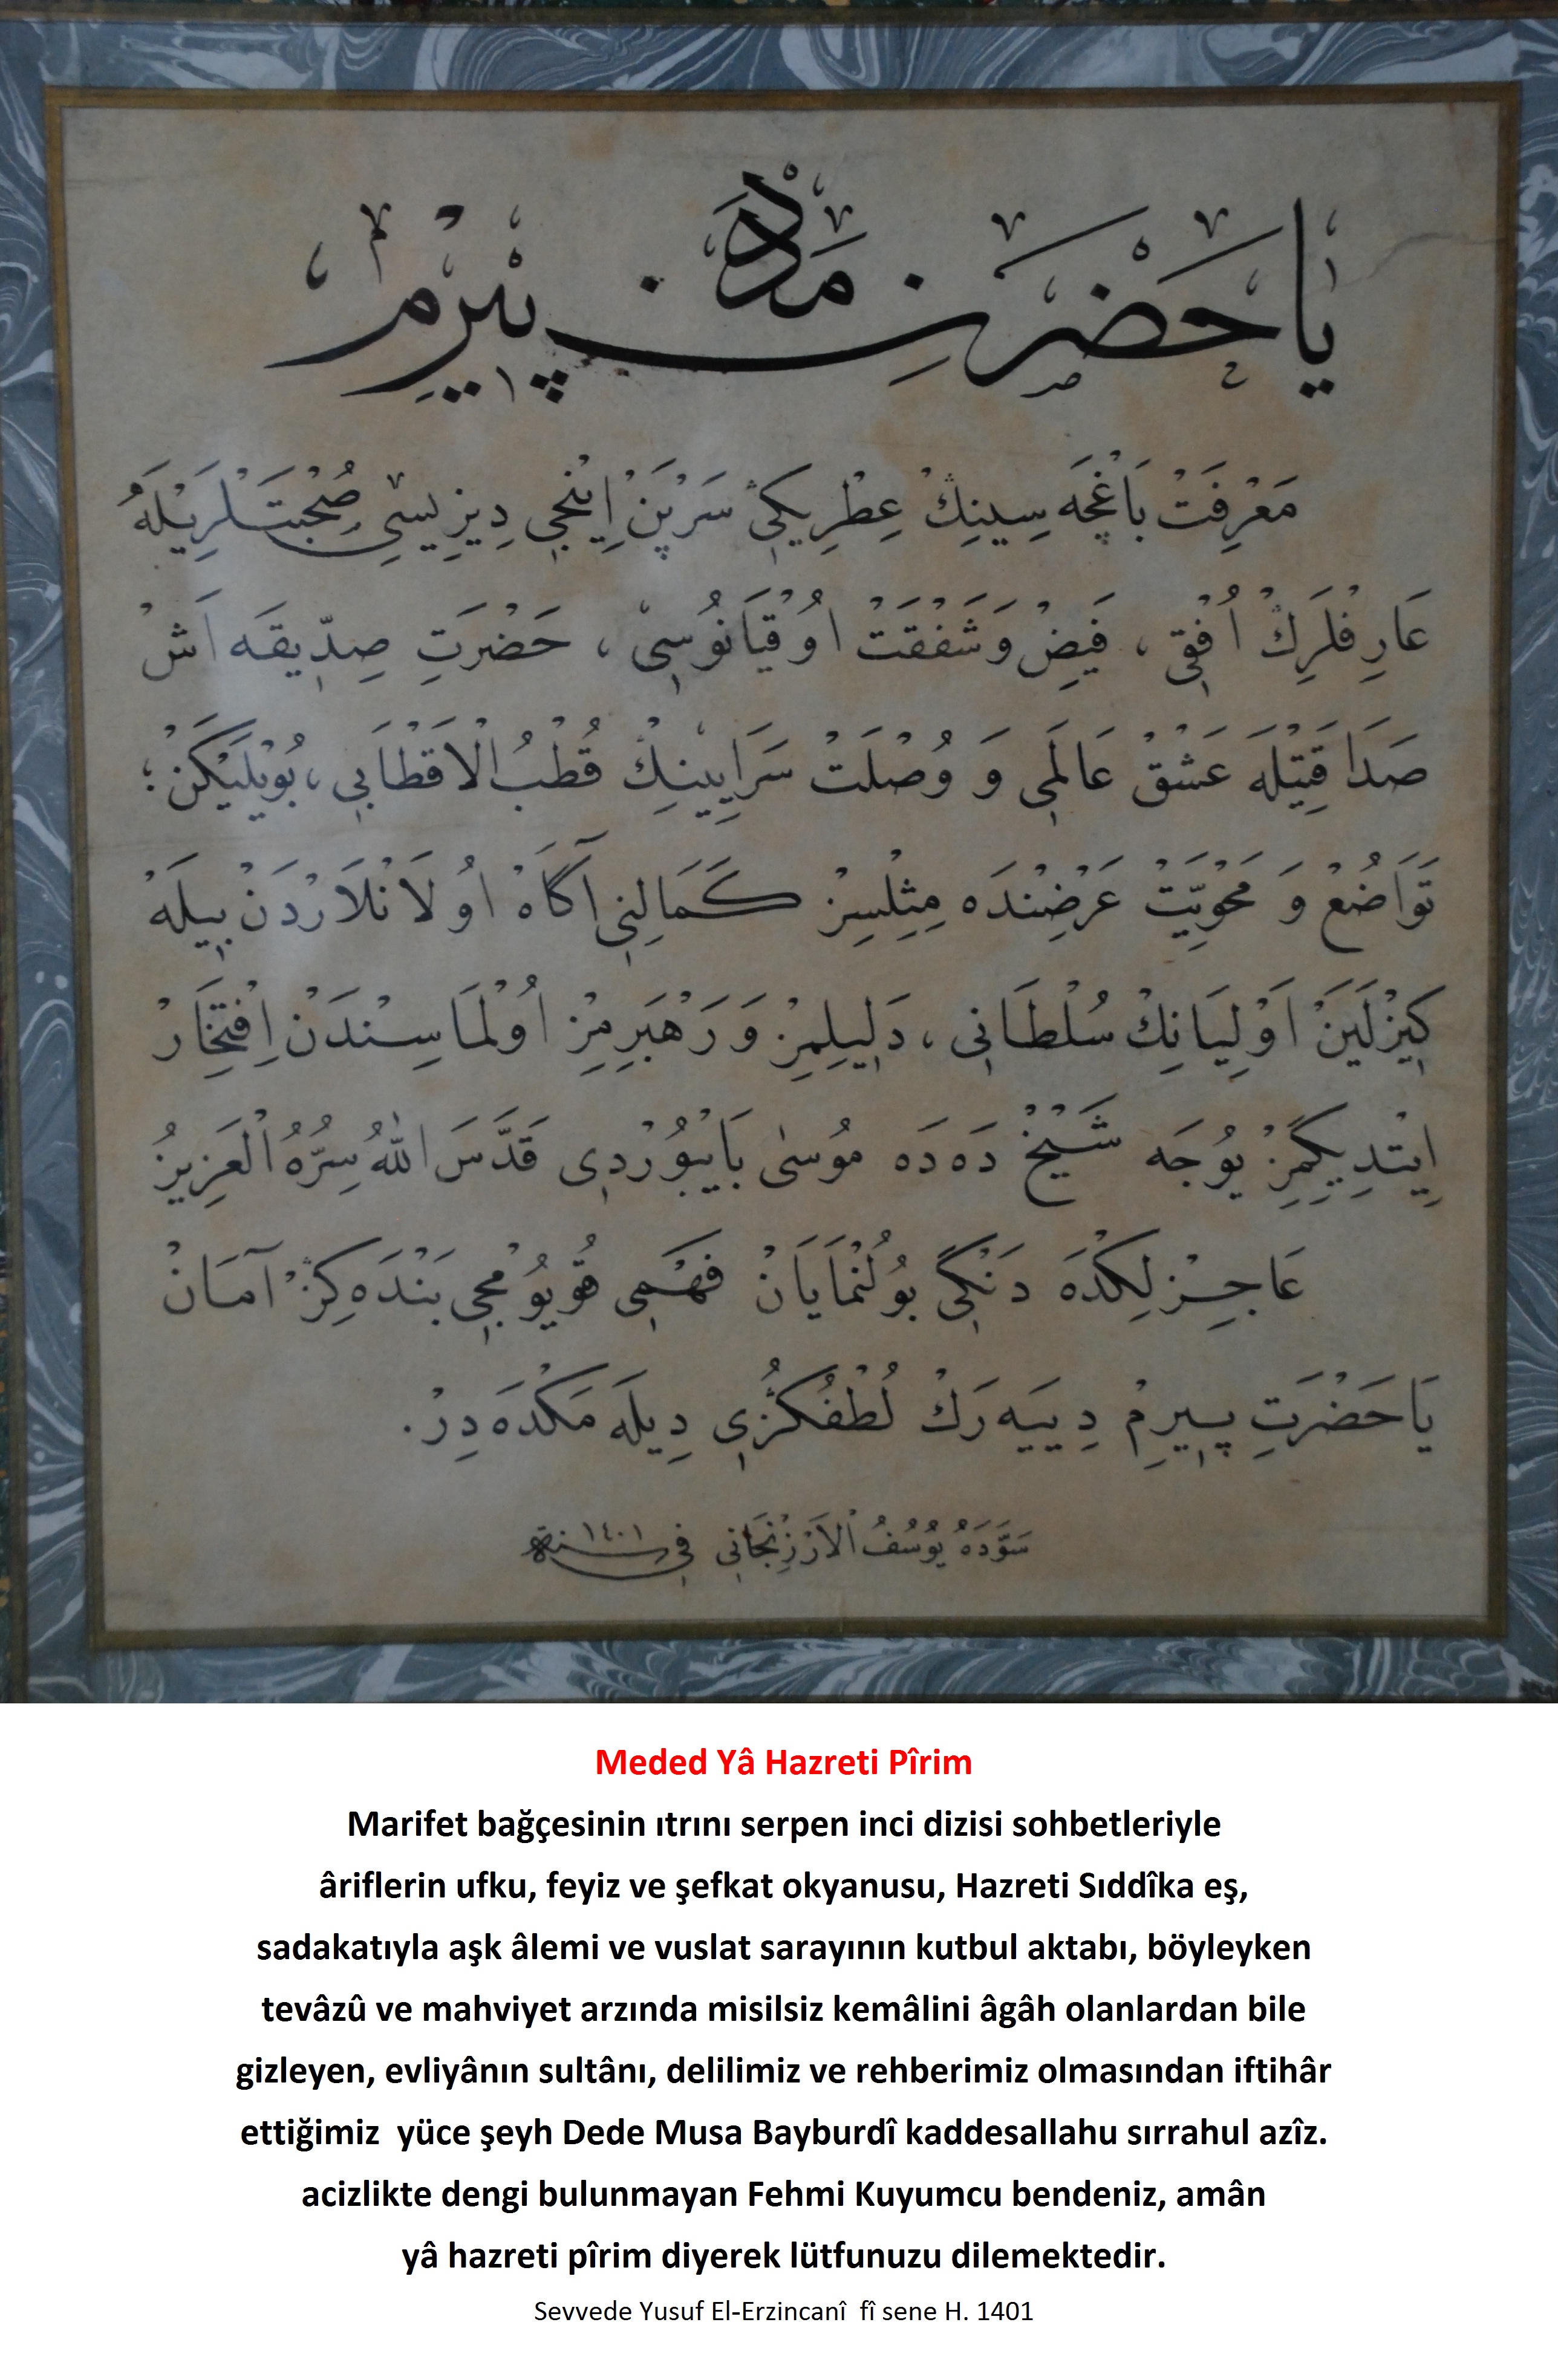 يَا حَضْرَتِ پِيرِمْ مَدَدْ
مَعْرِفَتْ بَاغْچَه سِينِڭْ عِطْرِيكِى سَرْپَنْ اِينْجِى دِيزِيسِى صُحْبَتْلَرِيْلَهْ
عَارِفْلَرِڭْ اُفْقِى ، فَيِضْ وَ شَفْقَتْ اوُقْيَانُوسِى ، حَضْرَتِ صِدّيقَه اَشْ
صَدَاقَتِيْلَهْ عَشْقْ عَالَمِى وَ وُصْلَتْ سَرَايِينِڭْ قُطْبُ الْاَقْطَابِى ، بُويْلَيْكَنْ ؛
تَوَاضُعْ وَ مَحْوِيَّتْ عَرْضِنْدَه مِثِلْسِزْ كَمَالِنِى آگَاهْ اوُلَانْلَارْدَنْ بِيلَهْ
كِيزْلَيَنْ اَوْلِيَانِڭْ سُلْطَانِى ، دَلِيلِمِزْ وَ رَهْبَرِمِزْ اوُلْمَاسِنْدَنْ اِفْتِخَارْ
اِيْتْدِيكِمِزْ يُوجَه شَيْخْ دَه دَه مُوسٰى بَايْبُوُرْدِى قَدَّسَ اللّٰهُ سِرَّهُ الْعَزِيزُ
عَاجِزْلِكْدَه دَنْكِى بوُلُنْمَايَانْ فَهْمِى قُويُوُمْجِى بَنْدَه كِزْ آمَانْ
يَا حَضْرَتِ پِيرِمْ دِييَه رَكْ لُطْفُكُزِى دِيلَه مَكْدَه دِرْ .
سَوَّدَهُ يُوُسُفُ الْاَرْزِنْجَانِى فِى سنه ١٤٠١
Meded Yâ Hazreti Pîrim
Marifet bağçesinin ıtrını serpen inci dizisi sohbetleriyle
âriflerin ufku, feyiz ve şefkat okyanusu, Hazreti Sıddîka eş,
sadakatıyla aşk âlemi ve vuslat sarayının kutbul aktabı, böyleyken
tevâzû ve mahviyet arzında misilsiz kemâlini âgâh olanlardan bile
gizleyen, evliyânın sultânı, delilimiz ve rehberimiz olmasından iftihâr
ettiğimiz  yüce şeyh Dede Musa Bayburdî kaddesallahu sırrahul azîz.
acizlikte dengi bulunmayan Fehmi Kuyumcu bendeniz, amân
yâ hazreti pîrim diyerek lütfunuzu dilemektedir.
Sevvede Yusuf El-Erzincanî  fî sene H. 1401